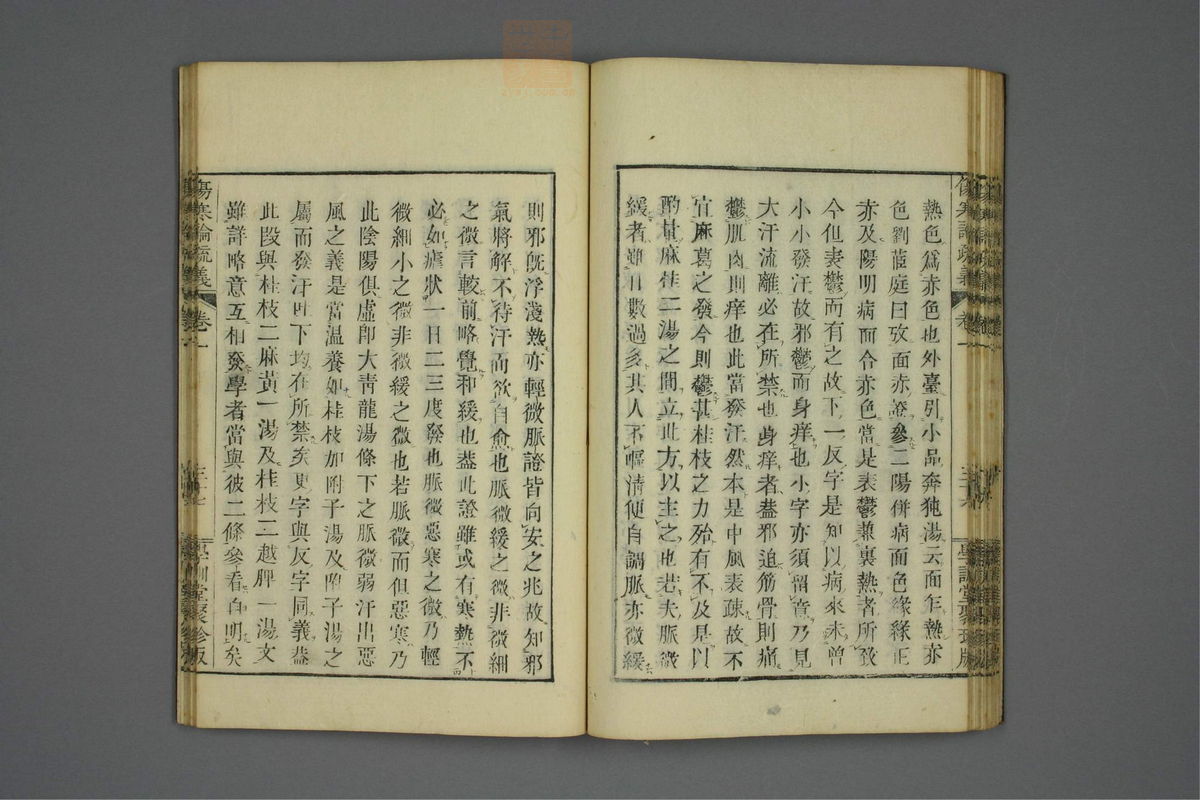 熱色爲赤色也外臺引小品奔㹠湯云面乍熱赤
色劉茝庭曰攷面赤證參二陽併病面色緣緣正
赤及陽明病面合赤色當是表鬱兼裏熱者所致
今但表鬱而有之故下一反字是知以病來未曾
小小發汗故邪鬱而身痒也小字亦須留意乃見
大汗流離必在所禁也身痒者蓋邪迫筋骨則痛
鬱肌肉則痒也此當發汗然本是中風表疎故不
宜麻葛之發今則鬱甚桂枝之力殆有不及是以
酌量麻桂二湯之間立此方以主之也若夫脈微
緩者雖日數過多其人不嘔清便自調脈亦微緩
則邪旣浮淺熱亦輕微脈證皆向安之兆故知邪
氣將解不待汗而欲自愈也脈微緩之微非微細
之微言較前略覺和緩也蓋此證雖或有寒熱不
必如瘧狀一日二三度發也脈微惡寒之微乃輕
微細小之微非微緩之微也若脈微而但惡寒乃
此陰陽俱虛卽大靑龍湯條下之脈微弱汗出惡
風之義是當溫養如桂枝加附子湯及附子湯之
屬而發汗吐下均在所禁矣更字與反字同義蓋
此段與桂枝二麻黃一湯及桂枝二越脾一湯文
雖詳略意互相發學者當與彼二條參看自明矣
傷寒論疏義 卷一 學訓堂聚珍版